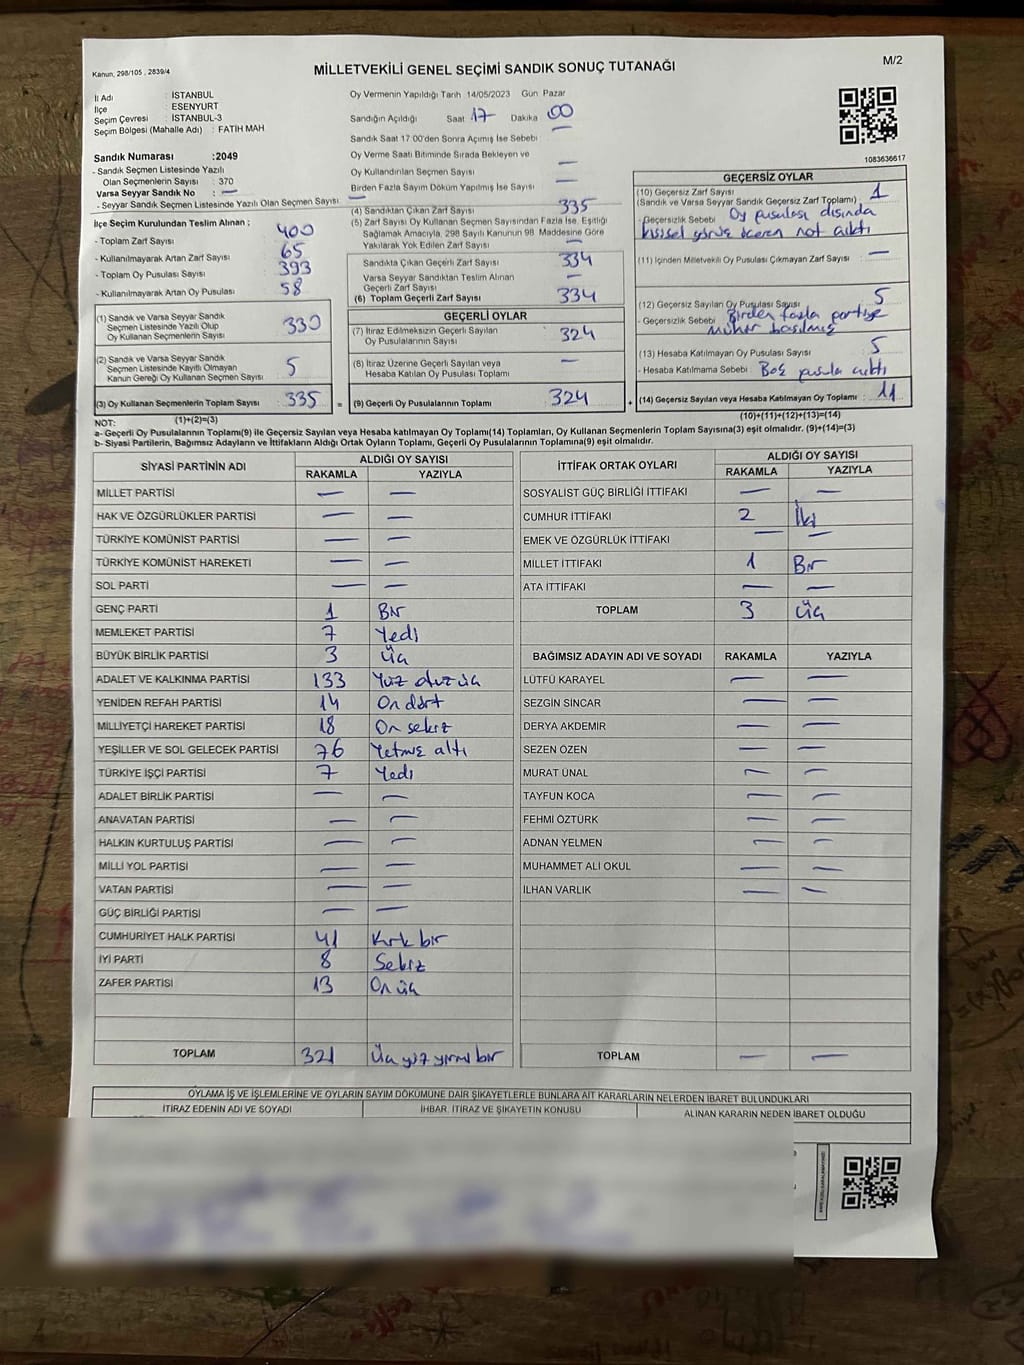 Kanun, 298/105 , 2839/4
MİLLETVEKİLİ GENEL SEÇİMİ SANDIK SONUÇ TUTANAĞI
M/2
İl Adı : İSTANBUL
İlçe : ESENYURT
Seçim Çevresi : İSTANBUL-3
Seçim Bölgesi (Mahalle Adı) : FATİH MAH
Sandık Numarası :2049
- Sandık Seçmen Listesinde Yazılı
Olan Seçmenlerin Sayısı : 370
Varsa Seyyar Sandık No : —
- Seyyar Sandık Seçmen Listesinde Yazılı Olan Seçmen Sayısı : —
Oy Vermenin Yapıldığı Tarih 14/05/2023 Gün Pazar
Sandığın Açıldığı Saat 17 Dakika 00
Sandık Saat 17:00'den Sonra Açımış İse Sebebi —
Oy Verme Saati Bitiminde Sırada Bekleyen ve
Oy Kullandırılan Seçmen Sayısı —
Birden Fazla Sayım Döküm Yapılmış İse Sayısı —
1083636617
İlçe Seçim Kurulundan Teslim Alınan ;
- Toplam Zarf Sayısı : 400
- Kullanılmayarak Artan Zarf Sayısı : 65
- Toplam Oy Pusulası Sayısı : 393
- Kullanılmayarak Artan Oy Pusulası : 58
(1) Sandık ve Varsa Seyyar Sandık
Seçmen Listesinde Yazılı Olup
Oy Kullanan Seçmenlerin Sayısı : 330
(2) Sandık ve Varsa Seyyar Sandık
Seçmen Listesinde Kayıtlı Olmayan
Kanun Gereği Oy Kullanan Seçmen Sayısı : 5
(3) Oy Kullanan Seçmenlerin Toplam Sayısı : 335
(4) Sandıktan Çıkan Zarf Sayısı : 335
(5) Zarf Sayısı Oy Kullanan Seçmen Sayısından Fazla İse, Eşitliği
Sağlamak Amacıyla, 298 Sayılı Kanunun 98. Maddesine Göre
Yakılarak Yok Edilen Zarf Sayısı : —
Sandıkta Çıkan Geçerli Zarf Sayısı : 334
Varsa Seyyar Sandıktan Teslim Alınan
Geçerli Zarf Sayısı : —
(6) Toplam Geçerli Zarf Sayısı : 334
GEÇERLİ OYLAR
(7) İtiraz Edilmeksizin Geçerli Sayılan
Oy Pusulasının Sayısı : 324
(8) İtiraz Üzerine Geçerli Sayılan veya
Hesaba Katılan Oy Pusulası Toplamı : —
= (9) Geçerli Oy Pusulalarının Toplamı : 324
GEÇERSİZ OYLAR
(10) Geçersiz Zarf Sayısı : 1
(Sandık ve Varsa Seyyar Sandık Geçersiz Zarf Toplamı)
- Geçersizlik Sebebi : Oy pusulası dışında
kişisel görüş içeren not çıktı
(11) İçinden Milletvekili Oy Pusulası Çıkmayan Zarf Sayısı : —
(12) Geçersiz Sayılan Oy Pusulası Sayısı : 5
- Geçersizlik Sebebi : Birden fazla partiye
mühür basılmış
(13) Hesaba Katılmayan Oy Pusulası Sayısı : 5
- Hesaba Katılmama Sebebi : Boş pusula çıktı
+ (14) Geçersiz Sayılan veya Hesaba Katılmayan Oy Toplamı : 11
NOT: (1)+(2)=(3)
(10)+(11)+(12)+(13)=(14)
a- Geçerli Oy Pusulalarının Toplamı(9) ile Geçersiz Sayılan veya Hesaba katılmayan Oy Toplamı(14) Toplamları, Oy Kullanan Seçmenlerin Toplam Sayısına(3) eşit olmalıdır. (9)+(14)=(3)
b- Siyasi Partilerin, Bağımsız Adayların ve İttifakların Aldığı Ortak Oyların Toplamı, Geçerli Oy Pusulalarının Toplamına(9) eşit olmalıdır.
SİYASİ PARTİNİN ADI
ALDIĞI OY SAYISI
RAKAMLA YAZIYLA
MİLLET PARTİSİ — —
HAK VE ÖZGÜRLÜKLER PARTİSİ — —
TÜRKİYE KOMÜNİST PARTİSİ — —
TÜRKİYE KOMÜNİST HAREKETİ — —
SOL PARTİ — —
GENÇ PARTİ 1 Bir
MEMLEKET PARTİSİ 7 Yedi
BÜYÜK BİRLİK PARTİSİ 3 Üç
ADALET VE KALKINMA PARTİSİ 133 Yüz otuz üç
YENİDEN REFAH PARTİSİ 14 On dört
MİLLİYETÇİ HAREKET PARTİSİ 18 On sekiz
YEŞİLLER VE SOL GELECEK PARTİSİ 76 Yetmiş altı
TÜRKİYE İŞÇİ PARTİSİ 7 Yedi
ADALET BİRLİK PARTİSİ — —
ANAVATAN PARTİSİ — —
HALKIN KURTULUŞ PARTİSİ — —
MİLLİ YOL PARTİSİ — —
VATAN PARTİSİ — —
GÜÇ BİRLİĞİ PARTİSİ — —
CUMHURİYET HALK PARTİSİ 41 Kırk bir
İYİ PARTİ 8 Sekiz
ZAFER PARTİSİ 13 On üç
TOPLAM 321 Üç yüz yirmi bir
İTTİFAK ORTAK OYLARI
ALDIĞI OY SAYISI
RAKAMLA YAZIYLA
SOSYALİST GÜÇ BİRLİĞİ İTTİFAKI — —
CUMHUR İTTİFAKI 2 İki
EMEK VE ÖZGÜRLÜK İTTİFAKI — —
MİLLET İTTİFAKI 1 Bir
ATA İTTİFAKI — —
TOPLAM 3 Üç
BAĞIMSIZ ADAYIN ADI VE SOYADI RAKAMLA YAZIYLA
LÜTFÜ KARAYEL — —
SEZGİN SİNCAR — —
DERYA AKDEMİR — —
SEZEN ÖZEN — —
MURAT ÜNAL — —
TAYFUN KOCA — —
FEHMİ ÖZTÜRK — —
ADNAN YELMEN — —
MUHAMMET ALİ OKUL — —
İLHAN VARLIK — —
TOPLAM — —
OYLAMA İŞ VE İŞLEMLERİNE VE OYLARIN SAYIM DÖKÜMÜNE DAİR ŞİKAYETLERLE BUNLARA AİT KARARLARIN NELERDEN İBARET BULUNDUKLARI
İTİRAZ EDENİN ADI VE SOYADI İHBAR, İTİRAZ VE ŞİKAYETİN KONUSU ALINAN KARARIN NEDEN İBARET OLDUĞU